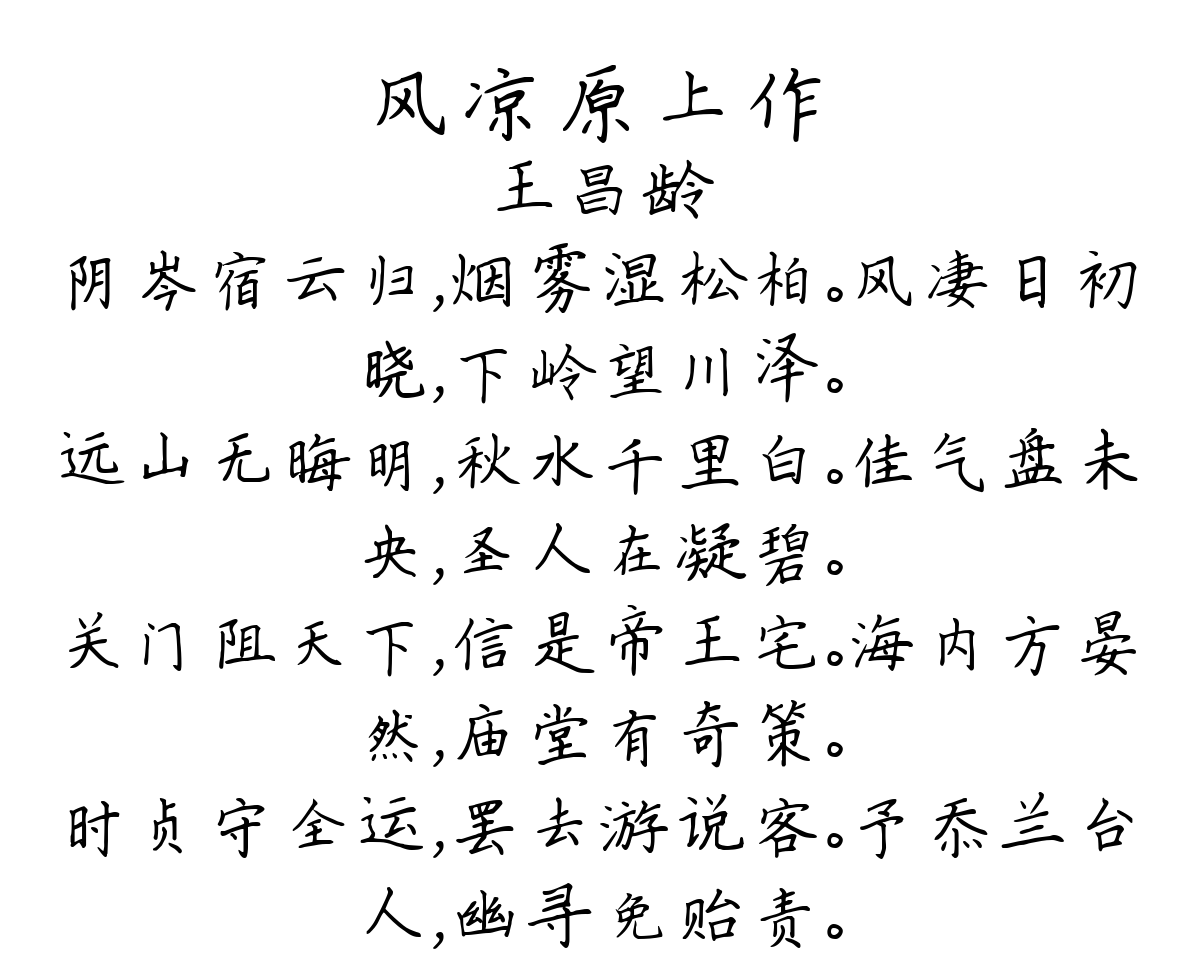 风凉原上作
王昌龄
阴岑宿云归,烟雾湿松柏。风凄日初
晓,下岭望川泽。
远山无晦明,秋水千里白。佳气盘未
央,圣人在凝碧。
关门阻天下,信是帝王宅。海内方晏
然,庙堂有奇策。
时贞守全运,罢去游说客。予忝兰台
人,幽寻免贻责。